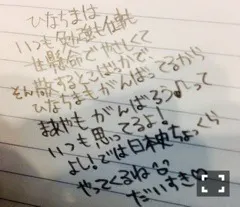 ひなちまは
いつも勉強も仕事も
一生懸命でやさしくて
そん敬するとこばかりで
ひなちまもがんばってるから
まあやもがんばろうって
いつも思ってるよ!
よし!では日本史ちょっくら
やってくるね
だいすき♡